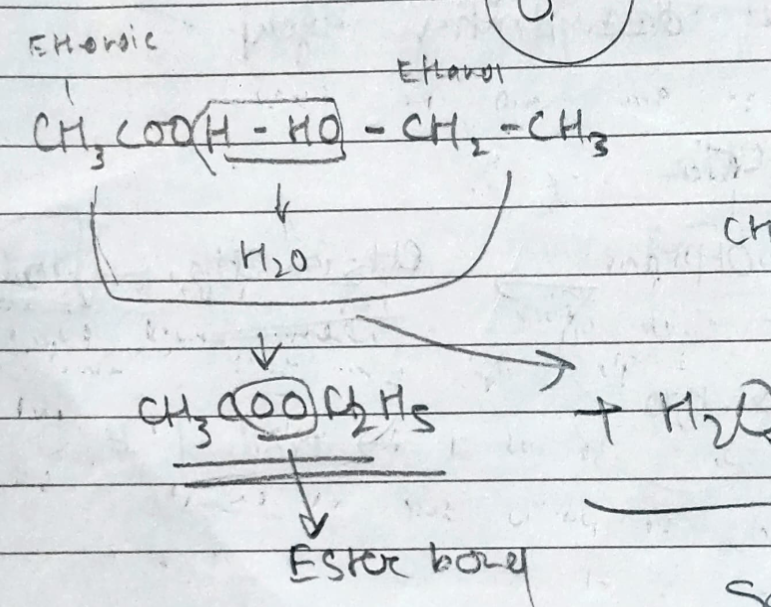 Ethanoic
Ethanol
CH₃COOH - HO - CH₂ - CH₃
H₂O
CH
CH₃COOC₂H₅ + H₂O
Ester bond